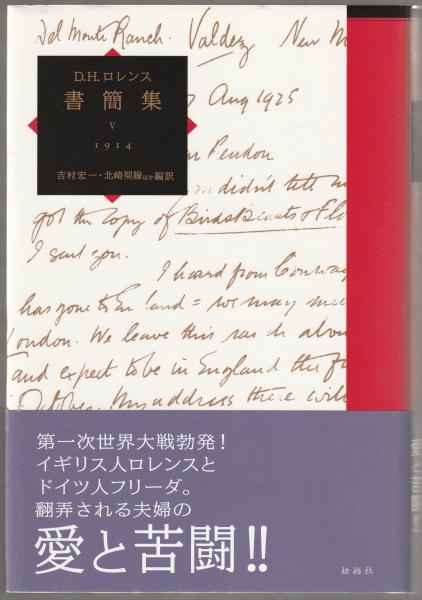 Del Monte Ranch. Valdez New M
D.H.ロレンス
書簡集
V
1914
吉村宏一・北崎契縁ほか編訳
Aug 1925
didn't tell me
got the copy of Birds Beasts & Flo
I sent you.
I heard from Conway
has gone to England = we may
London. We leave this ranch abou
and expect to be in England the fi
October. My address there will
第一次世界大戦勃発！
イギリス人ロレンスと
ドイツ人フリーダ。
翻弄される夫婦の
愛と苦闘!!
松柏社
愛と苦闘